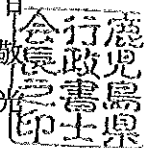 鹿児島県
行政書士
会長之印
敬光